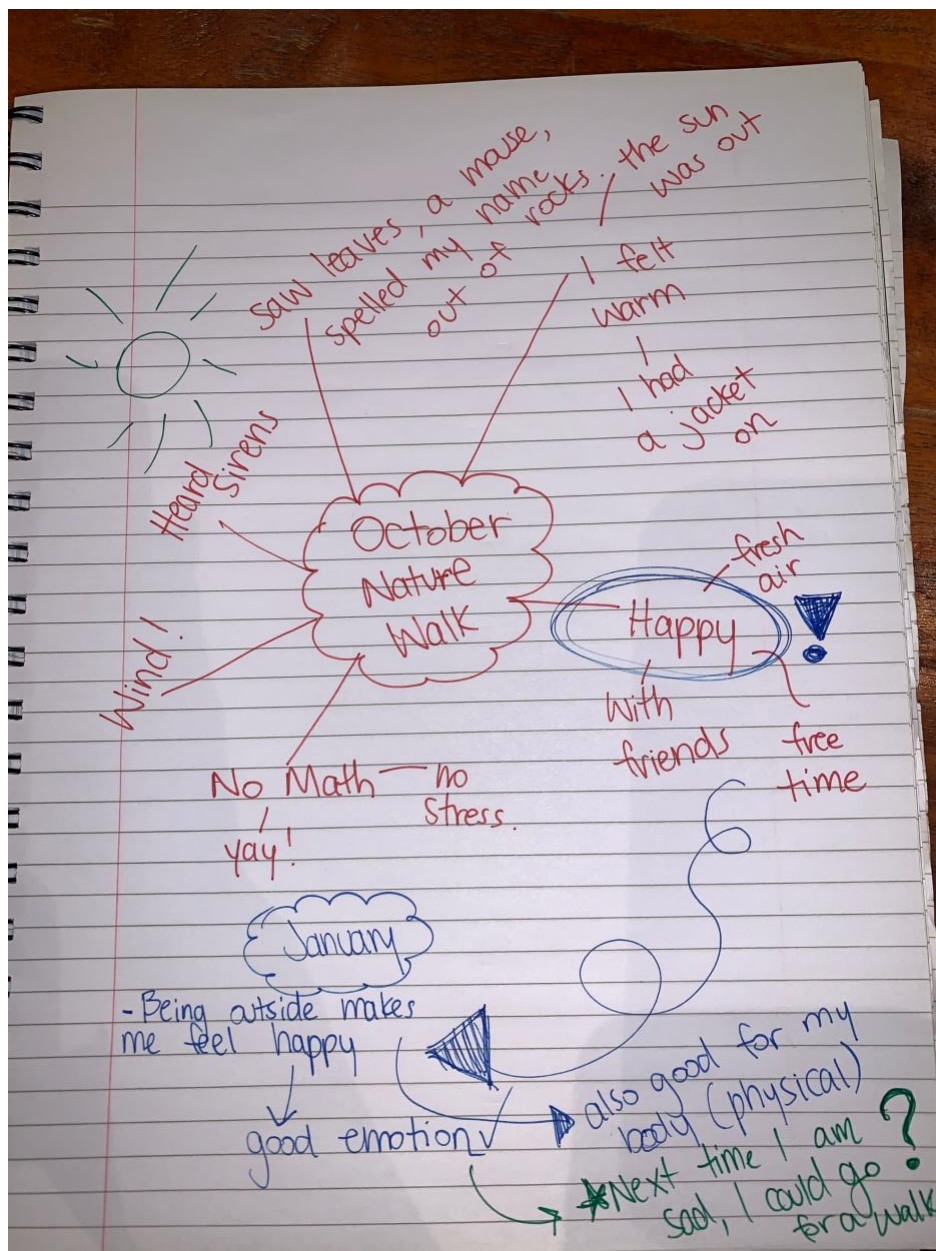 saw leaves, a mouse,
spelled my name
out of rocks.
the sun
was out
I felt
warm
I had
a jacket
on
Heard
Sirens
October
Nature
Walk
fresh
air
Happy
!
With
friends
free
time
Wind!
No Math — no
Stress.
yay!
January
- Being outside makes
me feel happy
good emotion ✓
also good for my
body (physical)
*Next time I am
sad, I could go
for a walk
?